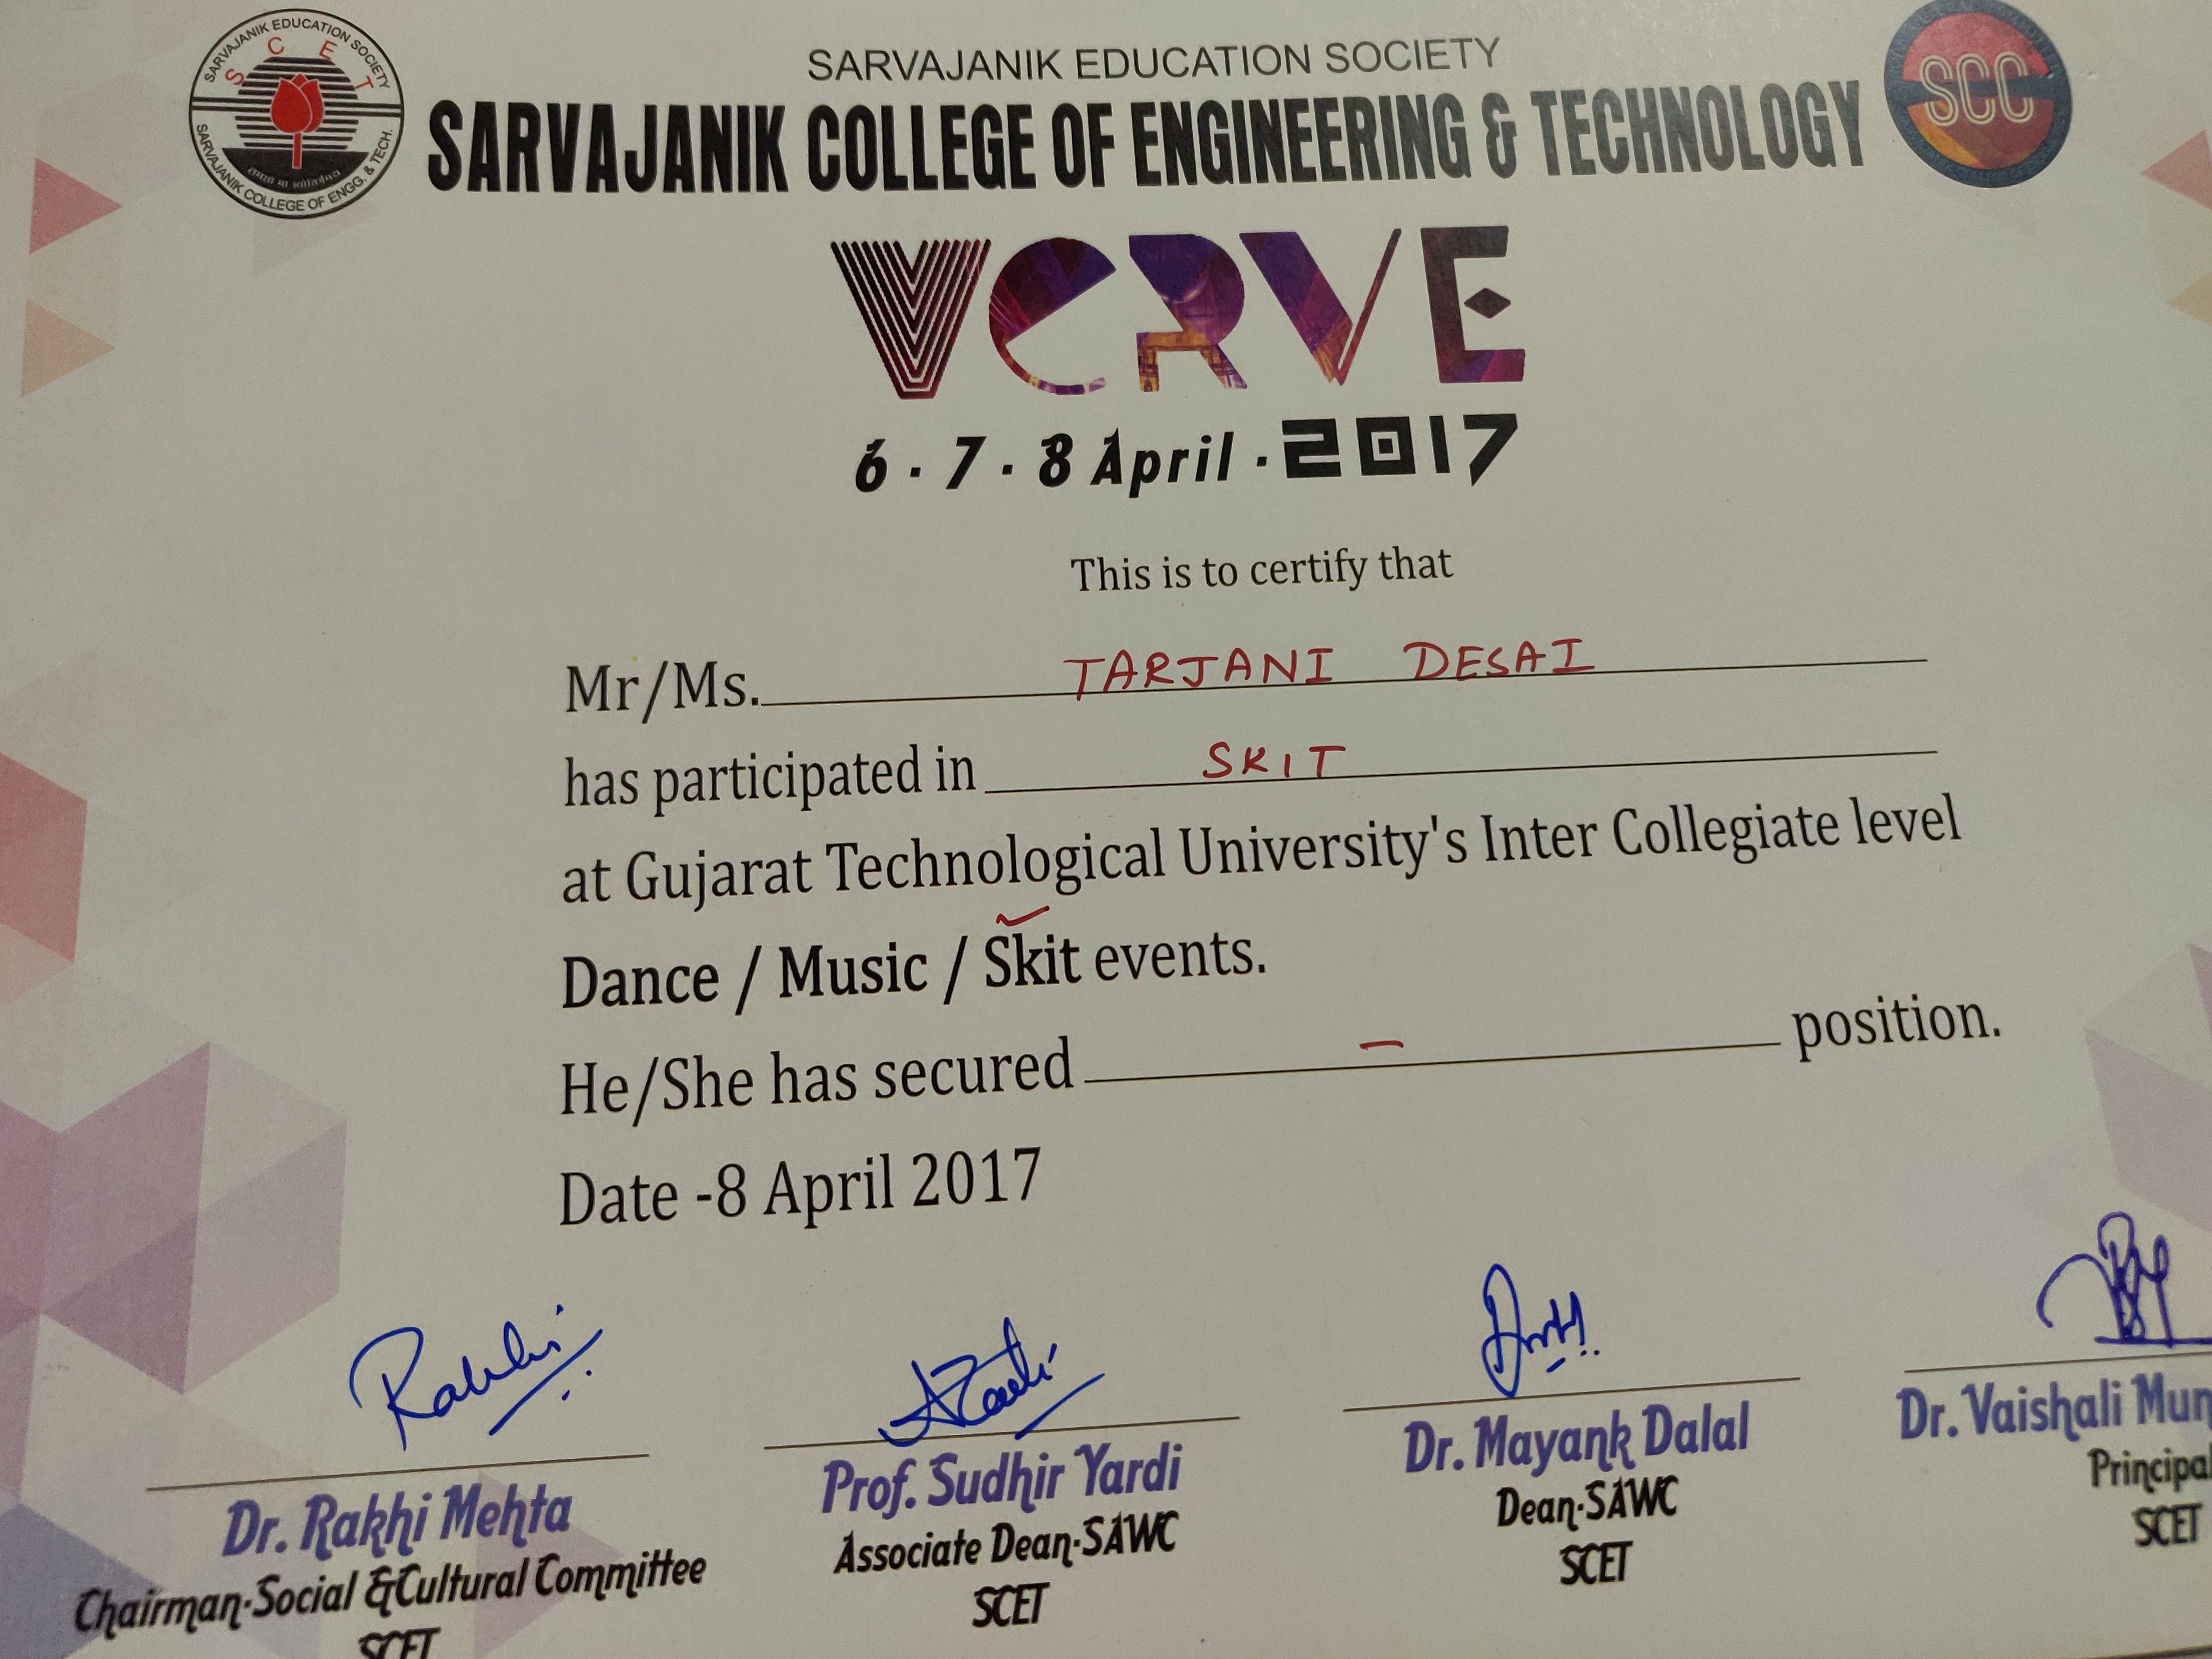 SARVAJANIK EDUCATION SOCIETY
S C E T
SARVAJANIK COLLEGE OF ENGG. & TECH.
SARVAJANIK EDUCATION SOCIETY
SARVAJANIK COLLEGE OF ENGINEERING & TECHNOLOGY
SCC
VERVE
6 . 7 . 8 April . 2017
This is to certify that
Mr/Ms. TARJANI DESAI
has participated in SKIT
at Gujarat Technological University's Inter Collegiate level
Dance / Music / Skit events.
He/She has secured – position.
Date -8 April 2017
Rakhi
Dr. Rakhi Mehta
Chairman-Social & Cultural Committee
SCET
Prof. Sudhir Yardi
Associate Dean-SAWC
SCET
Dr. Mayank Dalal
Dean-SAWC
SCET
Dr. Vaishali Mun
Principal
SCET